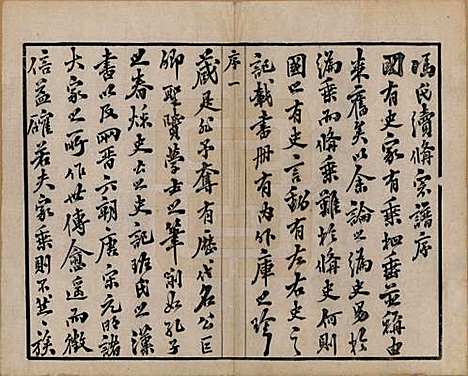 馮氏續脩宗譜序
國有史家有乘史乘並稱由
來舊矣以余論之編史易於
編乘而脩乘難於脩史何則
國之有史言動有左右史之
記載書冊有內外庫之珍
序一
藏足於予奪有歷代名公巨
卿聖賢學士之筆削如孔子
之春秋史公之史記班氏之漢
書以及兩晉六朝唐宋元明諸
大家之所作世傳愈遠而徵
信益確若夫家乘則不然一族